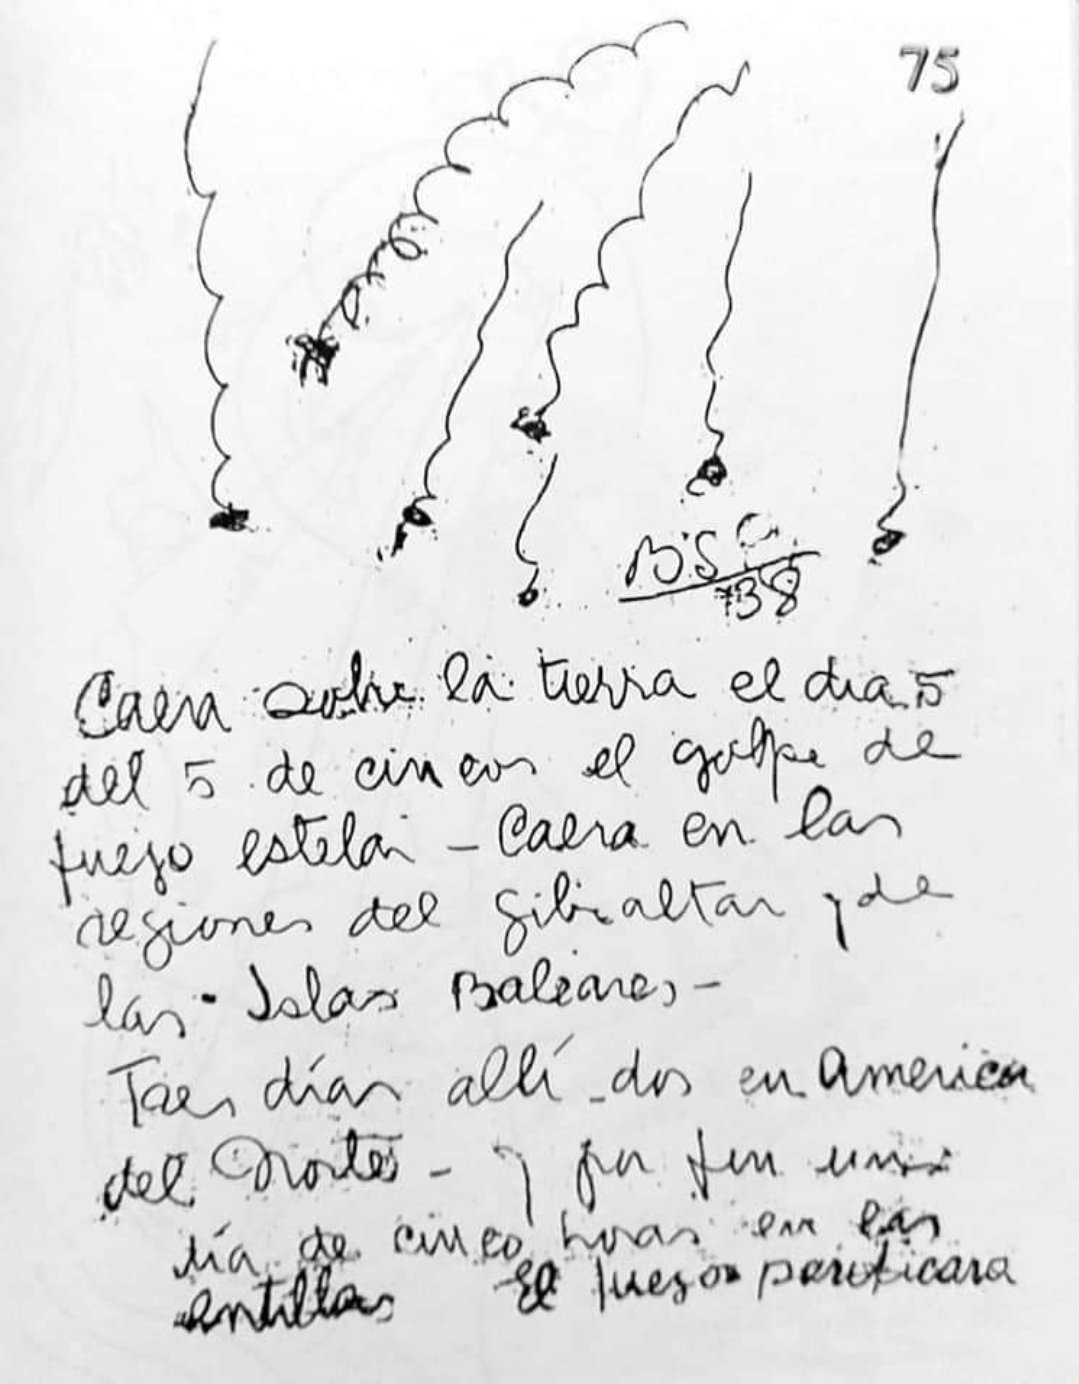 75
B.S.P.
38
Caera sobre la tierra el dia 5
del 5 de cincos el golpe de
fuego estelar - Caera en las
regiones del Gibraltar y de
las Islas Baleares -
Tres días allí - dos en America
del Norte - y por fin un
día de cinco horas en las
antillas El fuego purificara